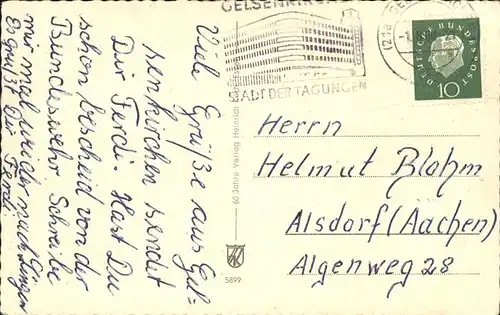 GELSENKIRCHEN
STADT DER TAGUNGEN
DEUTSCHE BUNDESPOST
10
Viele Grüße aus Gel-
senkirchen sendet
Dir Ferdi. Hast Du
schon bescheid von der
Bundeswehr. Schreibe
mir mal wieder nach
Es grüßt Dir Ferdi
60 Jahre Verlag Heinrich
5899
Herrn
Helmut Blohm
Alsdorf (Aachen)
Algenweg 28